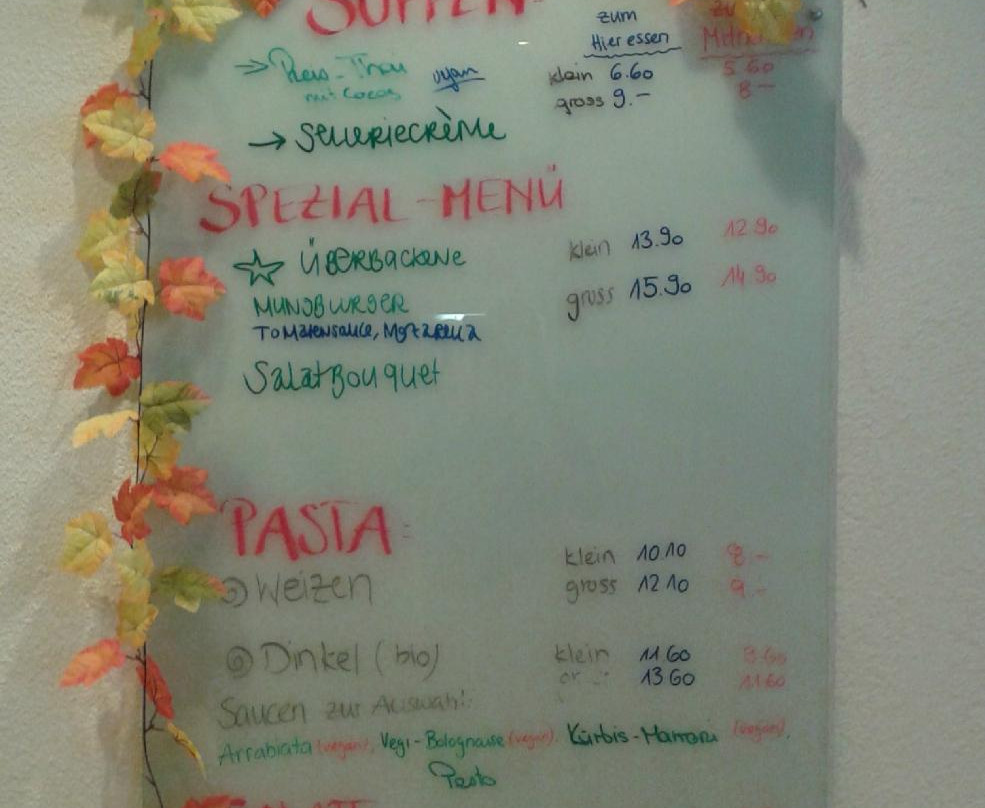 SUPPEN
zum
Hier essen
→ Reis-Thai vegan klein 6.60 5.60
mit Cocos gross 9.- 8.-
→ Selleriecrème
SPEZIAL-MENÜ
☆ ÜBERBACKENE klein 13.90 12.90
MUNGBURGER gross 15.90 14.90
TOMATENSAUCE, MOZZARELLA
Salatbouquet
PASTA:
Weizen klein 10.10 8.-
gross 12.10 9.-
Dinkel (bio) klein 11.60
13.60 11.60
Saucen zur Auswahl:
Arrabiata (vegan), Vegi-Bolognaise (vegan), Kürbis-Marroni (vegan),
Pesto